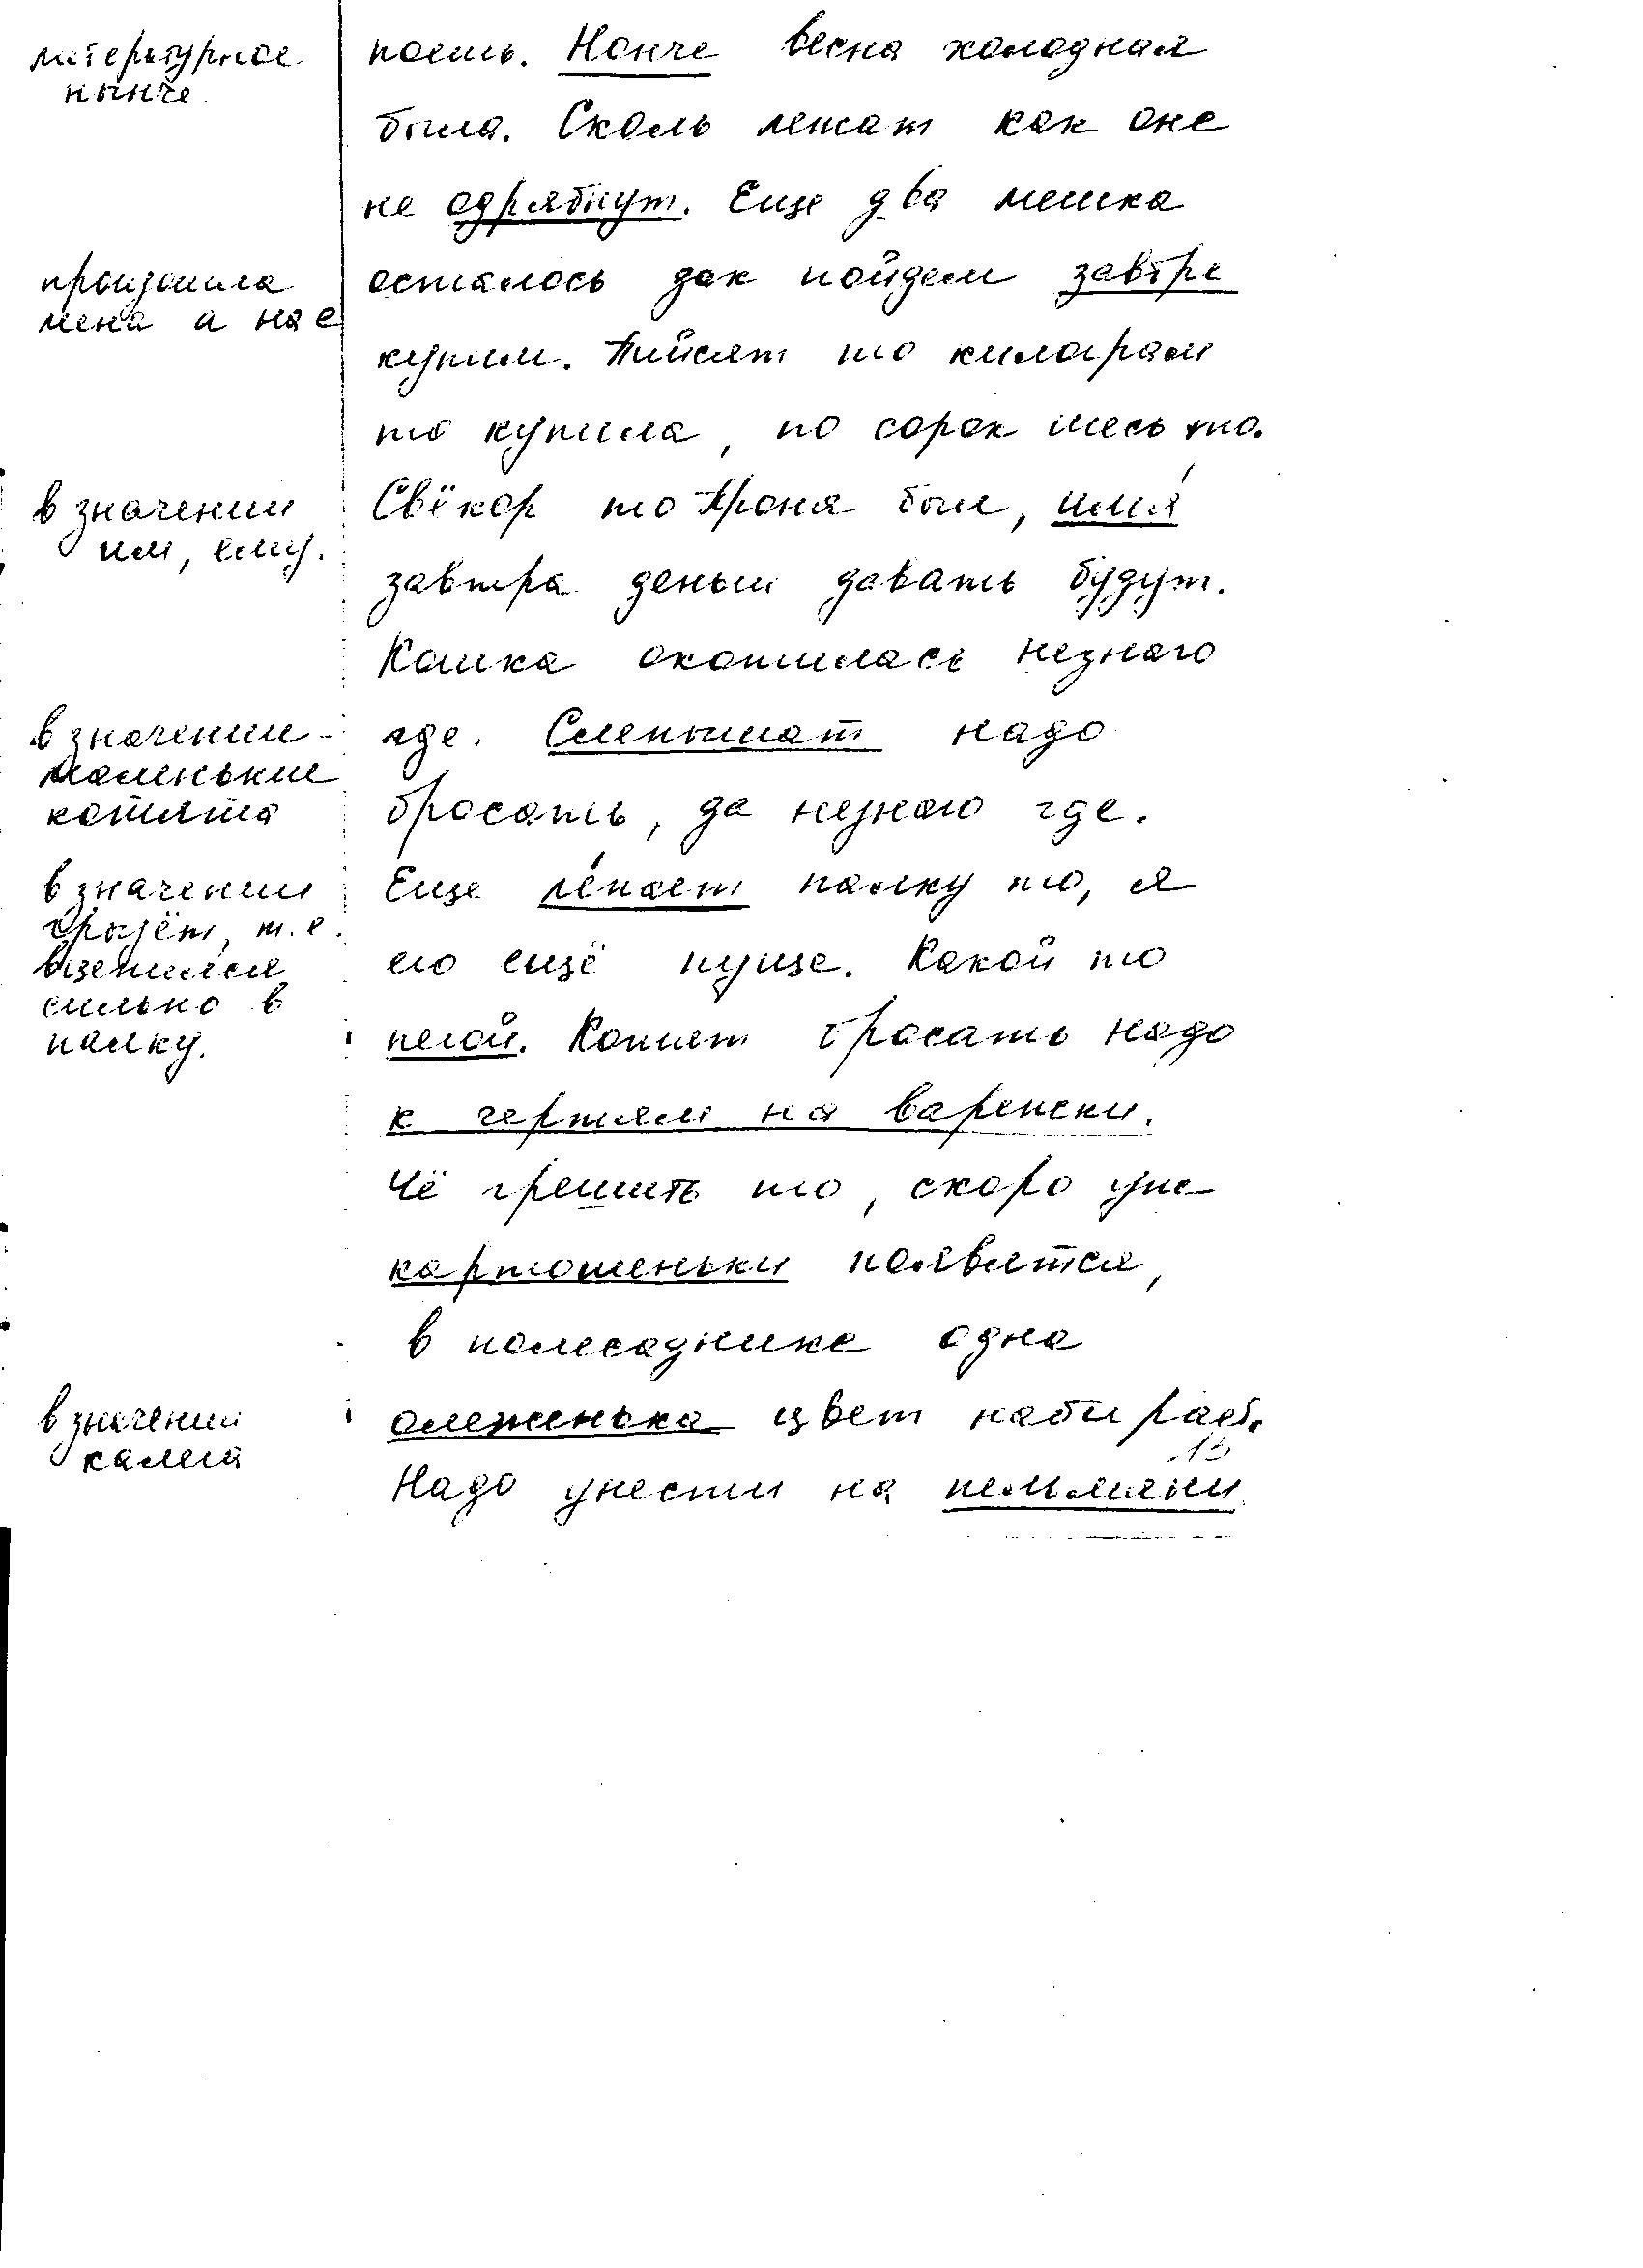 литературное
нынче.
произошла
мена а на е
в значении
им, ему.
в значении -
маленькие
котята
в значении
грызёт, т.е.
вцепился
сильно в
палку.
в значении
калега
поешь. Нонче весна холодная
была. Сколь лежат как оне
не одрябнут. Еще два мешка
осталось дак пойдем завтре
купим. Пийсят то килограм
то купила, по сорок шесь то.
Свёкор то Проня был, имя́
завтра деньги давать будут.
Кошка окотилась незнаю
где. Слепышат надо
бросать, да незнаю где.
Еще ле́пает палку то, я
ею ещё пуще. Какой то
пегой. Котят бросать надо
к чертям на варепски.
Чё грешить то, скоро уже
картошеньки появятся,
в полесаднике одна
олеженька цвет набирает.
13
Надо унести на пельмяни